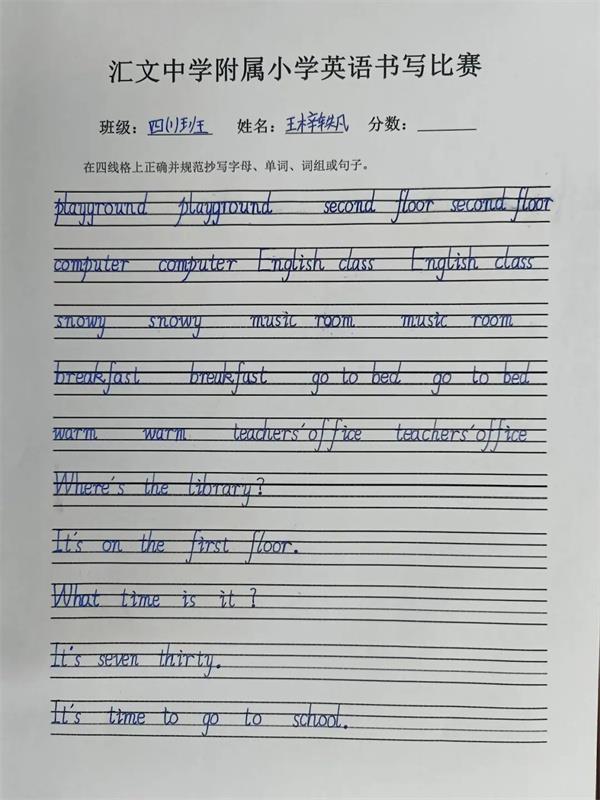 汇文中学附属小学英语书写比赛
班级：四川班 姓名：王梓轶凡 分数：
在四线格上正确并规范抄写字母、单词、词组或句子。
playground playground second floor second floor
computer computer English class English class
snowy snowy music room music room
breakfast breakfast go to bed go to bed
warm warm teachers' office teachers' office
Where's the library?
It's on the first floor.
What time is it?
It's seven thirty.
It's time to go to school.